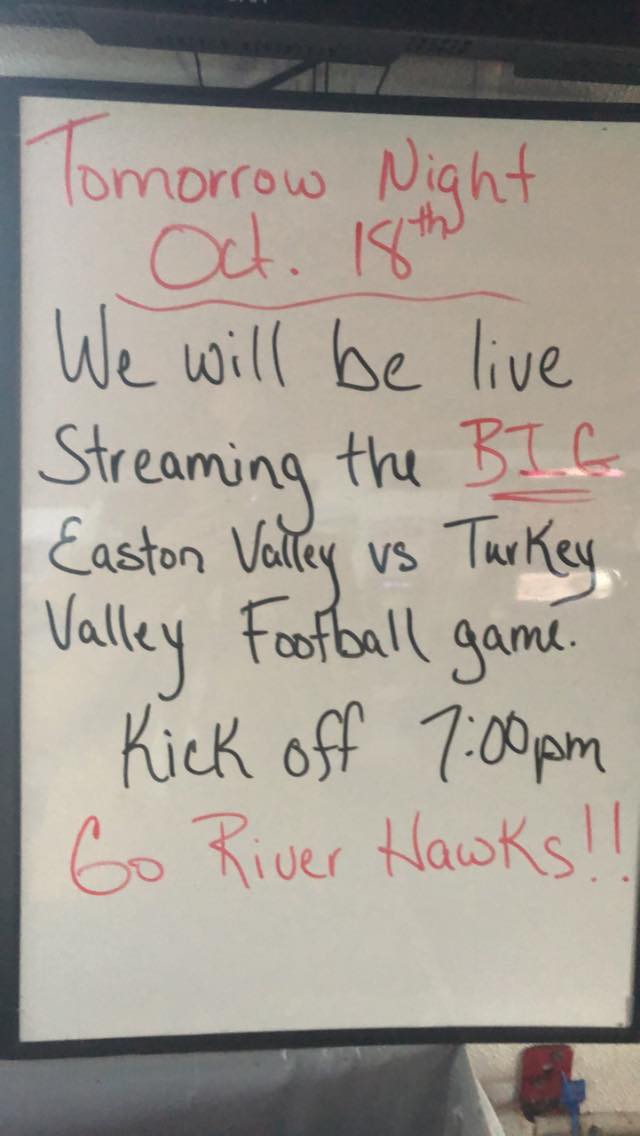 Tomorrow Night
Oct. 18th
We will be live
Streaming the BIG
Easton Valley vs Turkey
Valley Football game.
Kick off 7:00pm
Go River Hawks!!